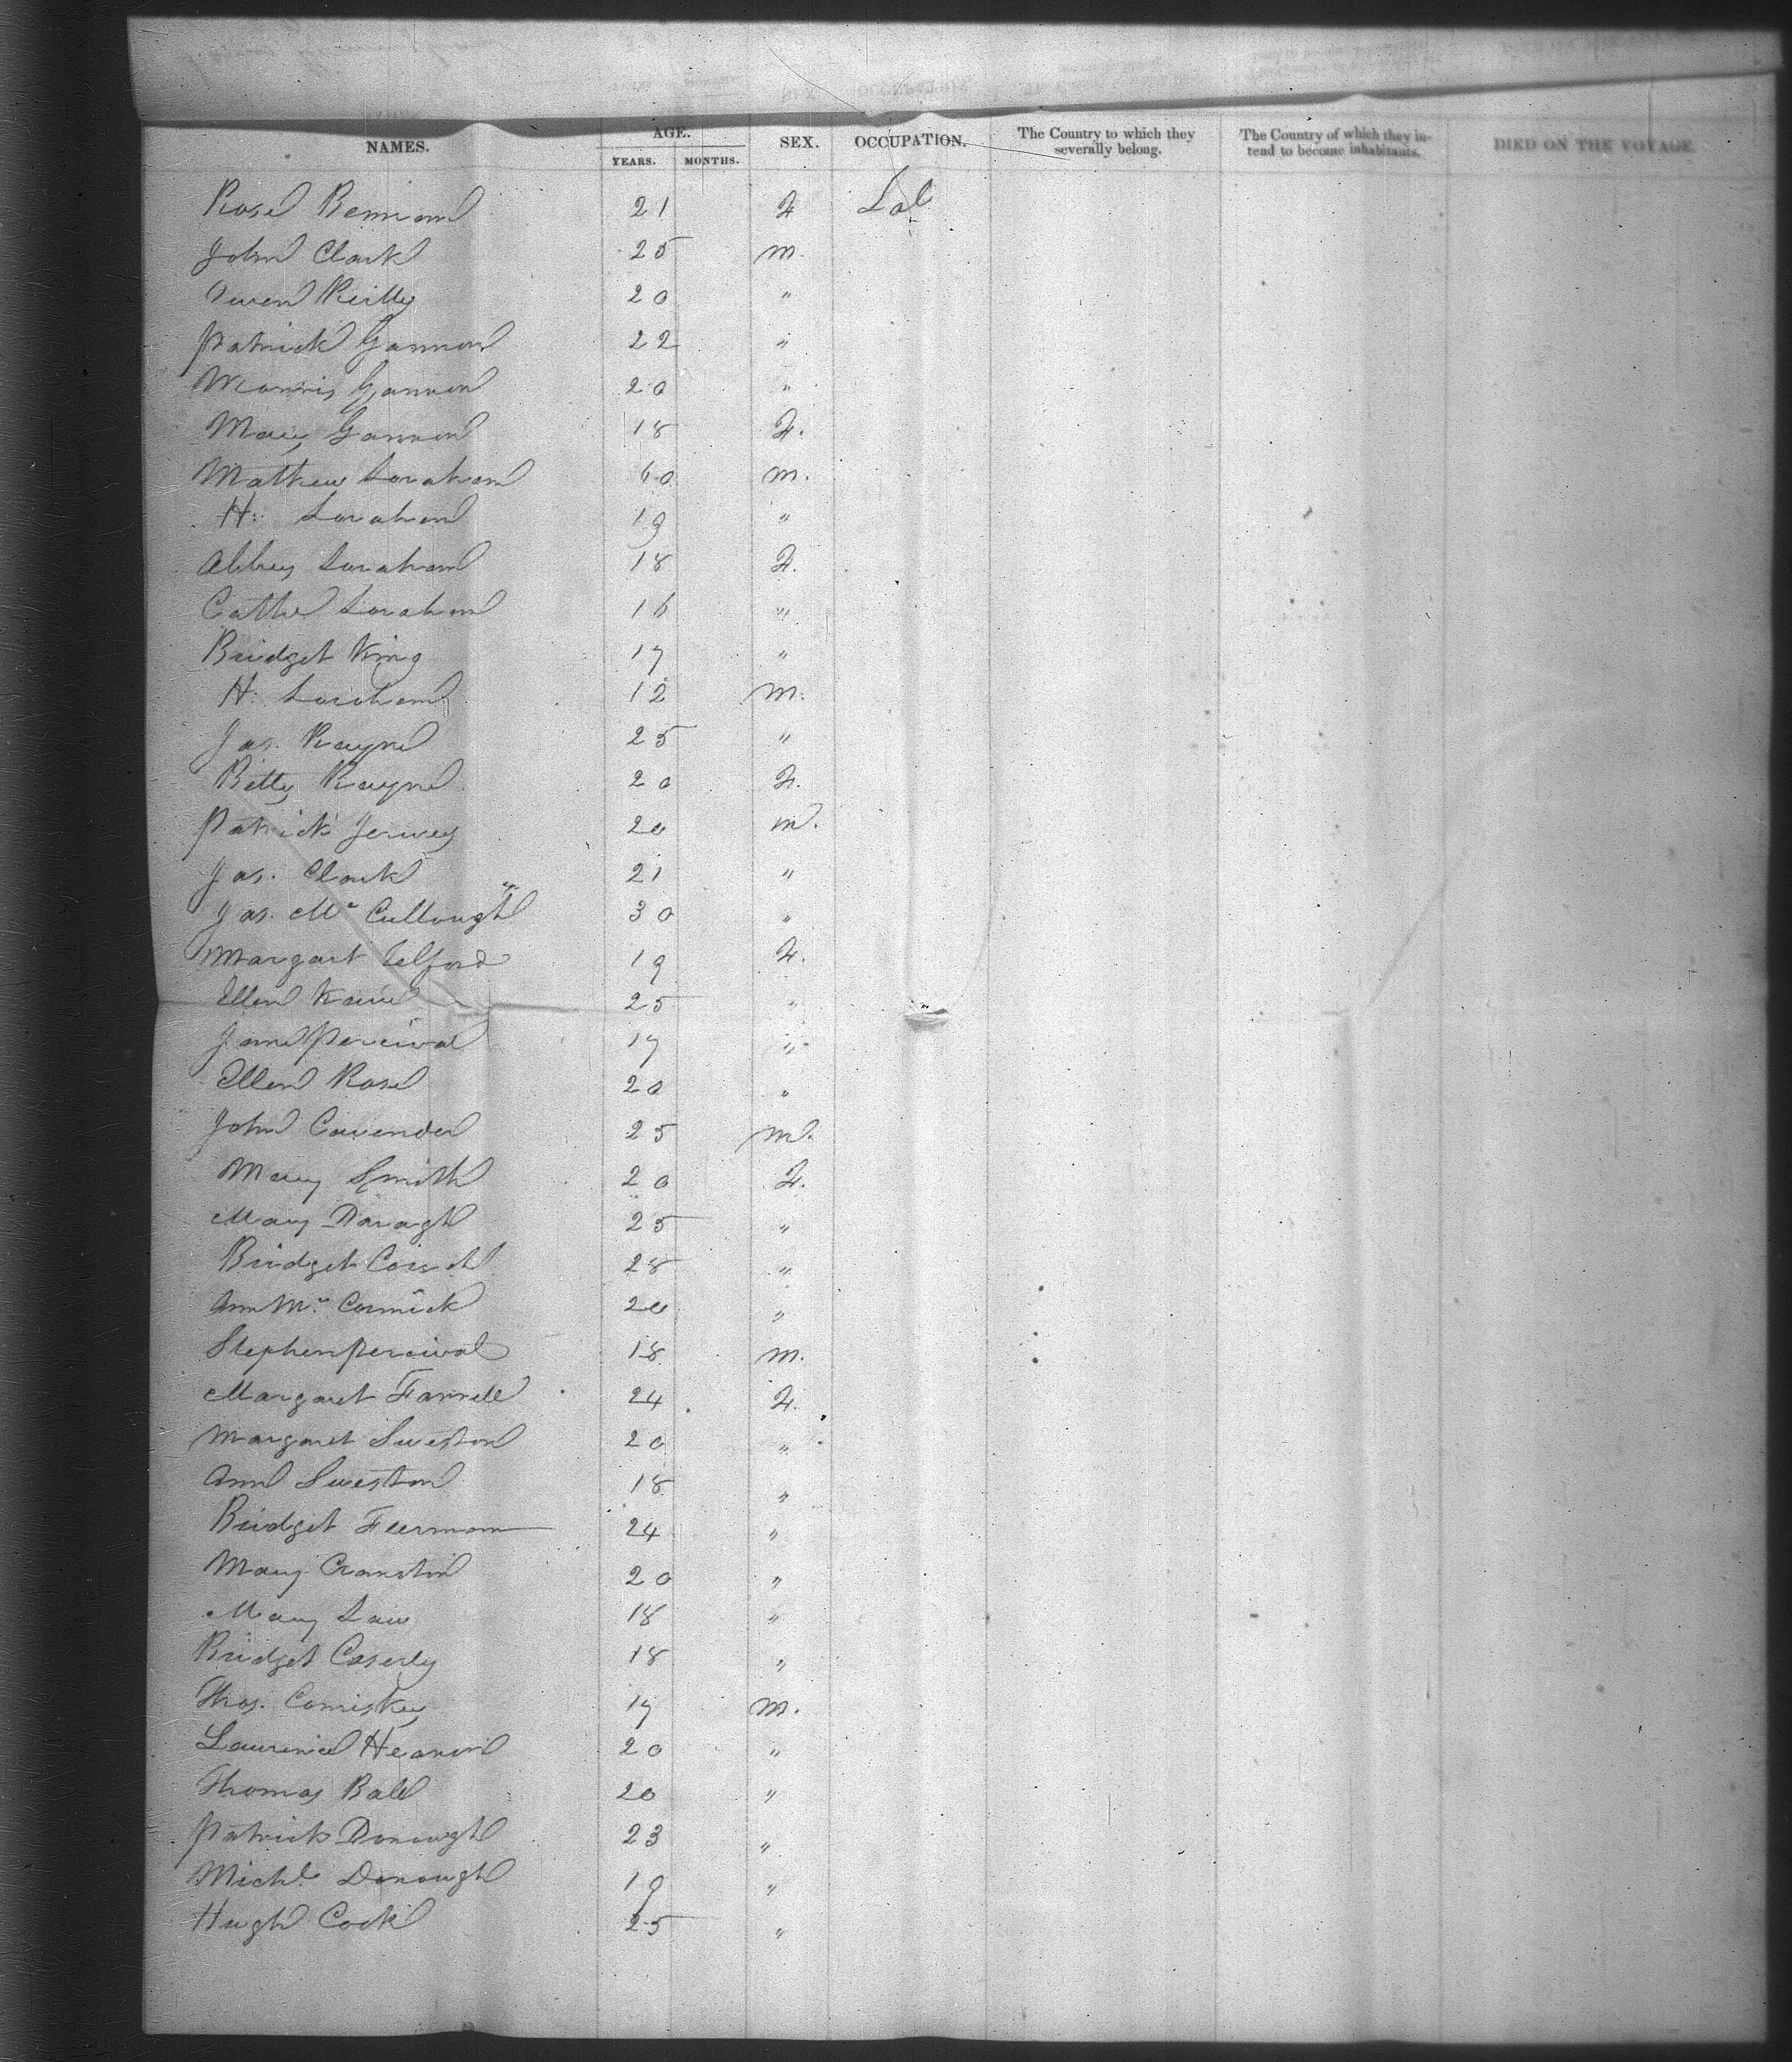 NAMES. AGE. YEARS. MONTHS. SEX. OCCUPATION. The Country to which they severally belong. The Country of which they intend to become inhabitants. DIED ON THE VOYAGE
Rose 21 F Lab
John Clark 25 m.
Owen Reilly 20 "
Patrick Gannon 22 "
Morris Gannon 20 "
Mary Gannon 18 F.
Mathew Lorahan 60 m.
H. Lorahan 19 "
Abbey Lorahan 18 F.
Cathe Lorahan 16 "
Bridget King 17 "
H. Lorahan 12 m.
Jas. Rayne 25 "
Betty Rayne 20 F.
Patrick 20 m.
Jas. Clark 21 "
Jas. Mc Cullough 30 "
Margart Telford 19 F.
Ellen 25 "
Jane Percival 17 "
Ellen Rose 20 "
John Cavender 25 m.
Mary Smith 20 F.
Mary Daragh 25 "
Bridget 28 "
Ann Mc Cormick 20 "
Stephen Percival 18 m.
Margaret Farrell 24 F.
Margaret Sweston 20 "
Ann Sweston 18 "
Bridget 24 "
Mary Cranston 20 "
Mary Law 18 "
Bridget Caserly 18 "
Thos. Comiskey 17 m.
Laurence 20 "
Thomas Ball 20 "
Patrick Donough 23 "
Michl. Donough 19 "
Hugh Cook 25 "